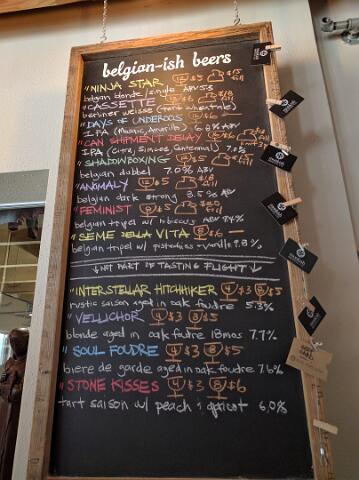 belgian-ish beers
"NINJA STAR 12 $5 $15 fill
belgian blonde/single ABV 5.3
"CASSETTE $5
berliner weisse (tart wheat ale)
"DAYS OF UNDERDOG $6
IPA (Mosaic, Amarillo) 6.8% ABV
"CAN SHIPMENT DELAY $6
IPA (Citra, Simcoe, Centennial) 7.0%
"SHADOWBOXING 8 $5
belgian dubbel 7.0% ABV
"ANOMALY 8 $5
belgian dark strong ABV
"FEMINIST 8 $5
belgian tripel w/ hibiscus ABV 9.4%
"SEME DELLA VITA 8 $6 —
belgian tripel w/ pistachios + vanilla 9.8%
↓ NOT PART OF TASTING FLIGHT ↓
"INTERSTELLAR HITCHHIKER 4 $3 8 $5
rustic saison aged in oak foudre 5.3%
"VELLICHOR 4 $3 8 $5
blonde aged in oak foudre 18mos 7.7%
"SOUL FOUDRE 4 $3 8 $5
biere de garde aged in oak foudre 7.6%
"STONE KISSES 4 $3 8 $6
tart saison w/ peach & apricot 6.0%